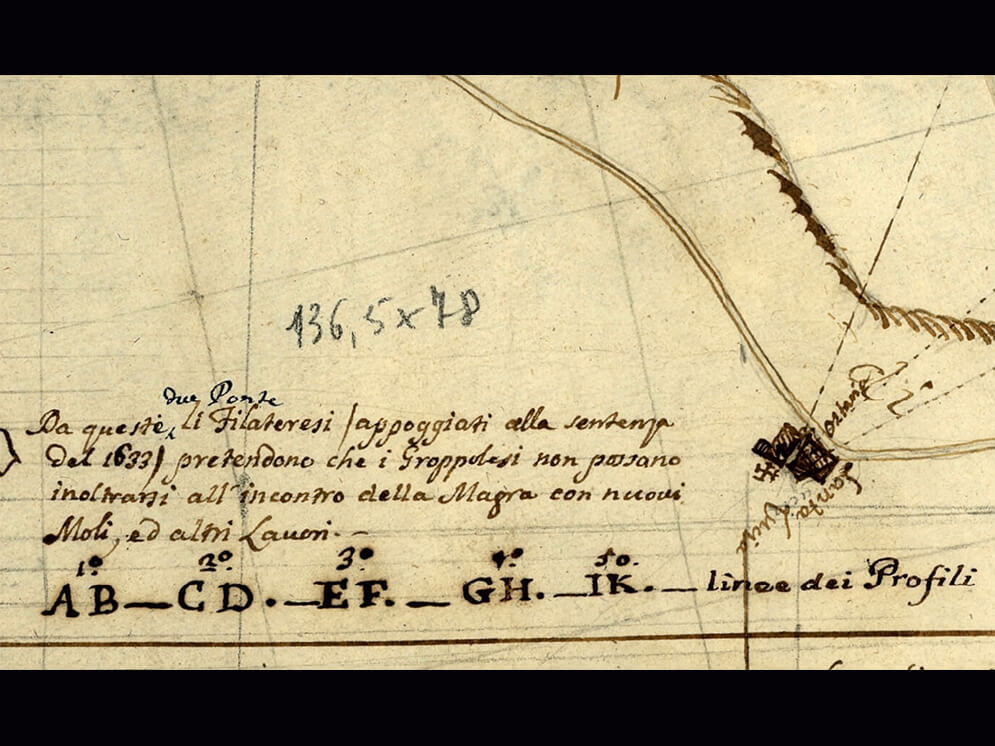 136,5 x 78
due Ponte
Da queste li Filateresi /appoggiati alla sentenza
del 1633/ pretendono che i Groppolesi non possano
inoltrarsi all'incontro della Magra con nuovi
Moli, ed altri Lavori.-
1º 2º 3º 4º 5º.
AB—CD.—EF.—GH.—IK.—linee dei Profili
Osteria
Santa
Lucia